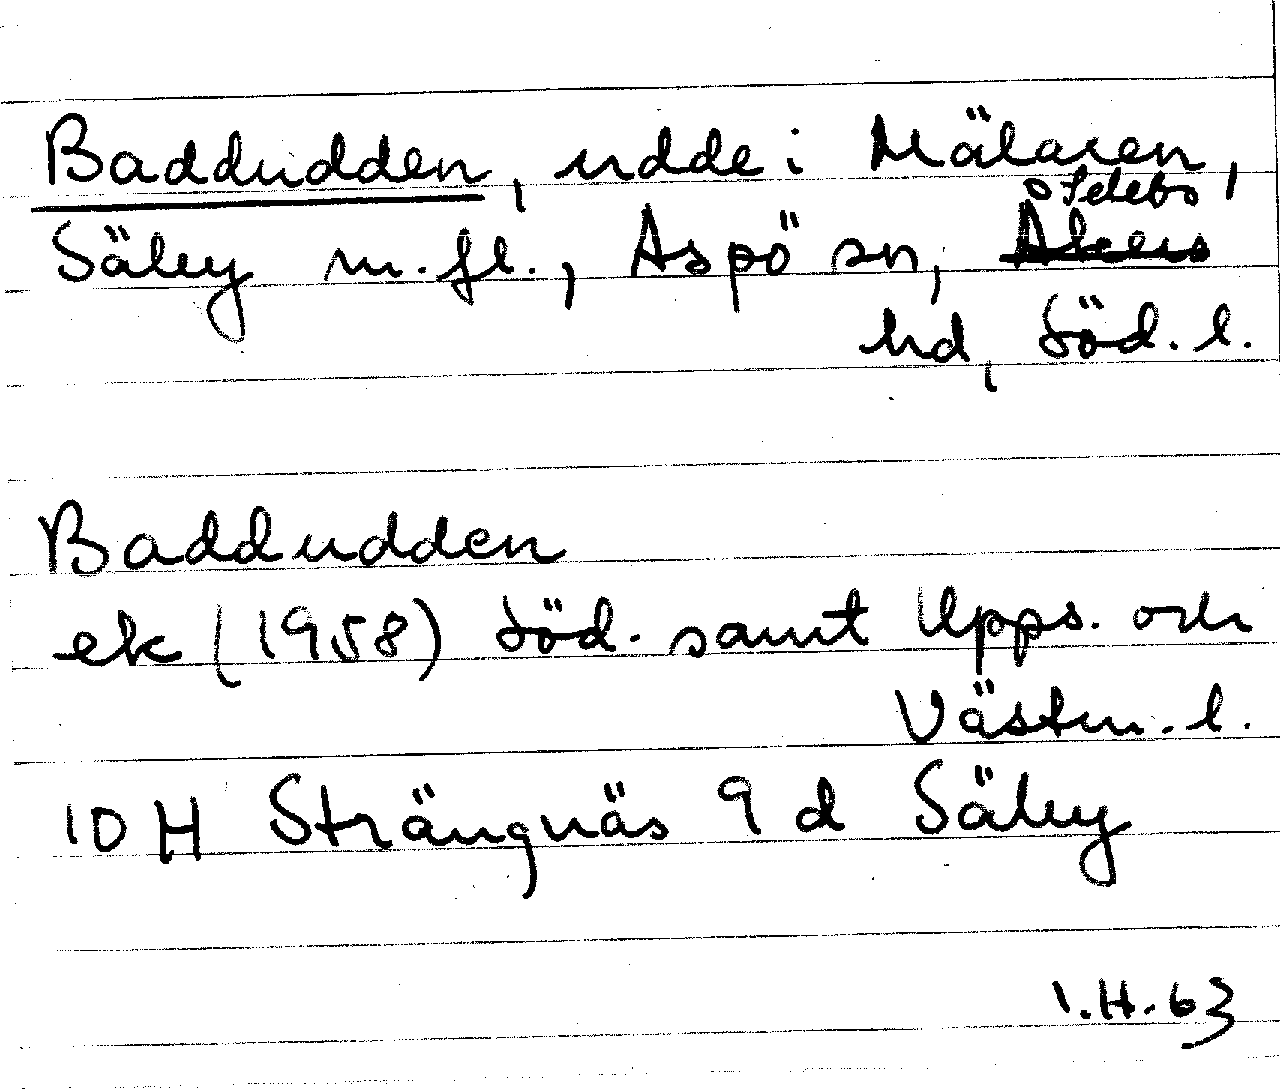 Baddudden, udde i Mälaren,
Selebo
Säby m. fl., Aspö sn, Åkers
hd, Söd. l.
Baddudden
ek (1958) Söd. samt Upps. och
Västm. l.
10 H Strängnäs 9 d Säby
I.H. 63